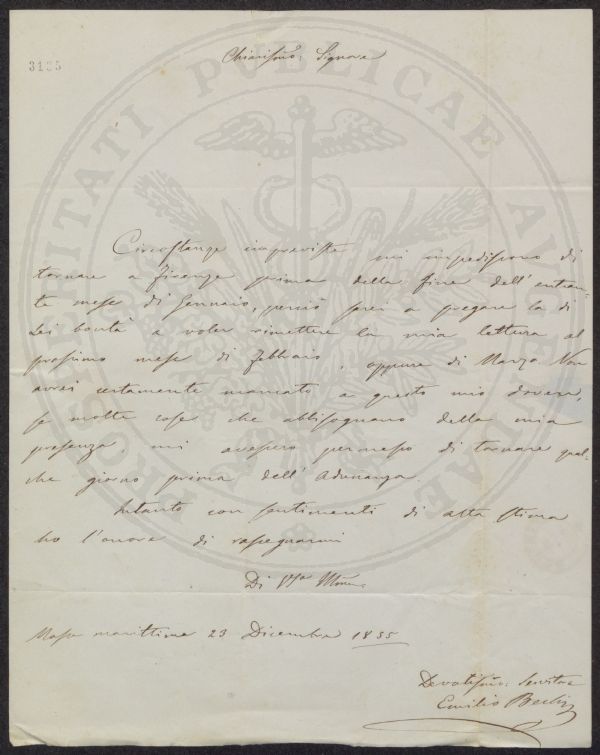 3135
Chiarissmo: Signore
Circostanze impreviste mi impediscono di
tornare a Firenze prima della fine dell'entran-
te mese di Gennaio, perciò sarei a pregare la di
Lei bontà a voler rimettere la mia lettura al
prossimo mese di Febbraio, oppure di Marzo. Non
avrei certamente mancato a questo mio dovere,
se molte cose che abbisognano della mia
presenza mi avessero permesso di tornare qual
che giorno prima dell'Adunanza.
Intanto con sentimenti di alta stima
ho l'onore di rassegnarmi
Di
Massa marittima 23 Dicembre 1835
Devotissmo: Servitore
Emilio
PROSPERITATI PUBLICAE AUGENDAE